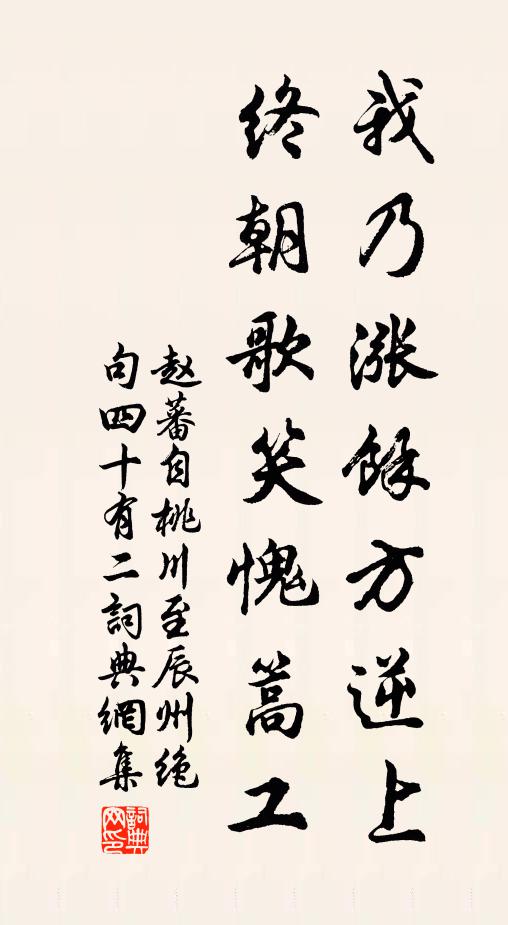 我乃漲餘方逆上
終朝歌笑愧篙工
赵蕃自桃川至辰州绝
句四十有二詞典網集
詞典
网印